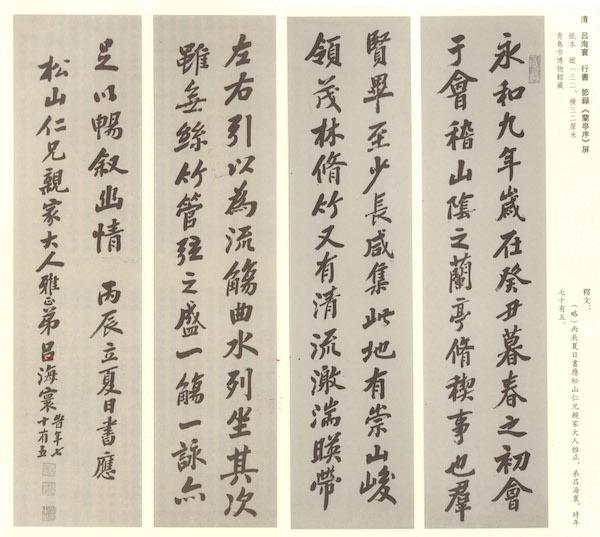 清　呂海寰　行書　節録《蘭亭序》屏
紙本　縱一三二、橫三二厘米
青島市博物館藏
釋文：
（略）丙辰夏日書應松山仁兄親家大人雅正，弟呂海寰，時年
七十有五。
永和九年歲在癸丑暮春之初會
于會稽山陰之蘭亭脩稧事也羣
賢畢至少長咸集此地有崇山峻
領茂林脩竹又有清流激湍暎帶
左右引以為流觴曲水列坐其次
雖無絲竹管弦之盛一觴一詠亦
足以暢敘幽情　丙辰立夏日書應
松山仁兄親家大人雅正弟呂海寰時年七
十有五